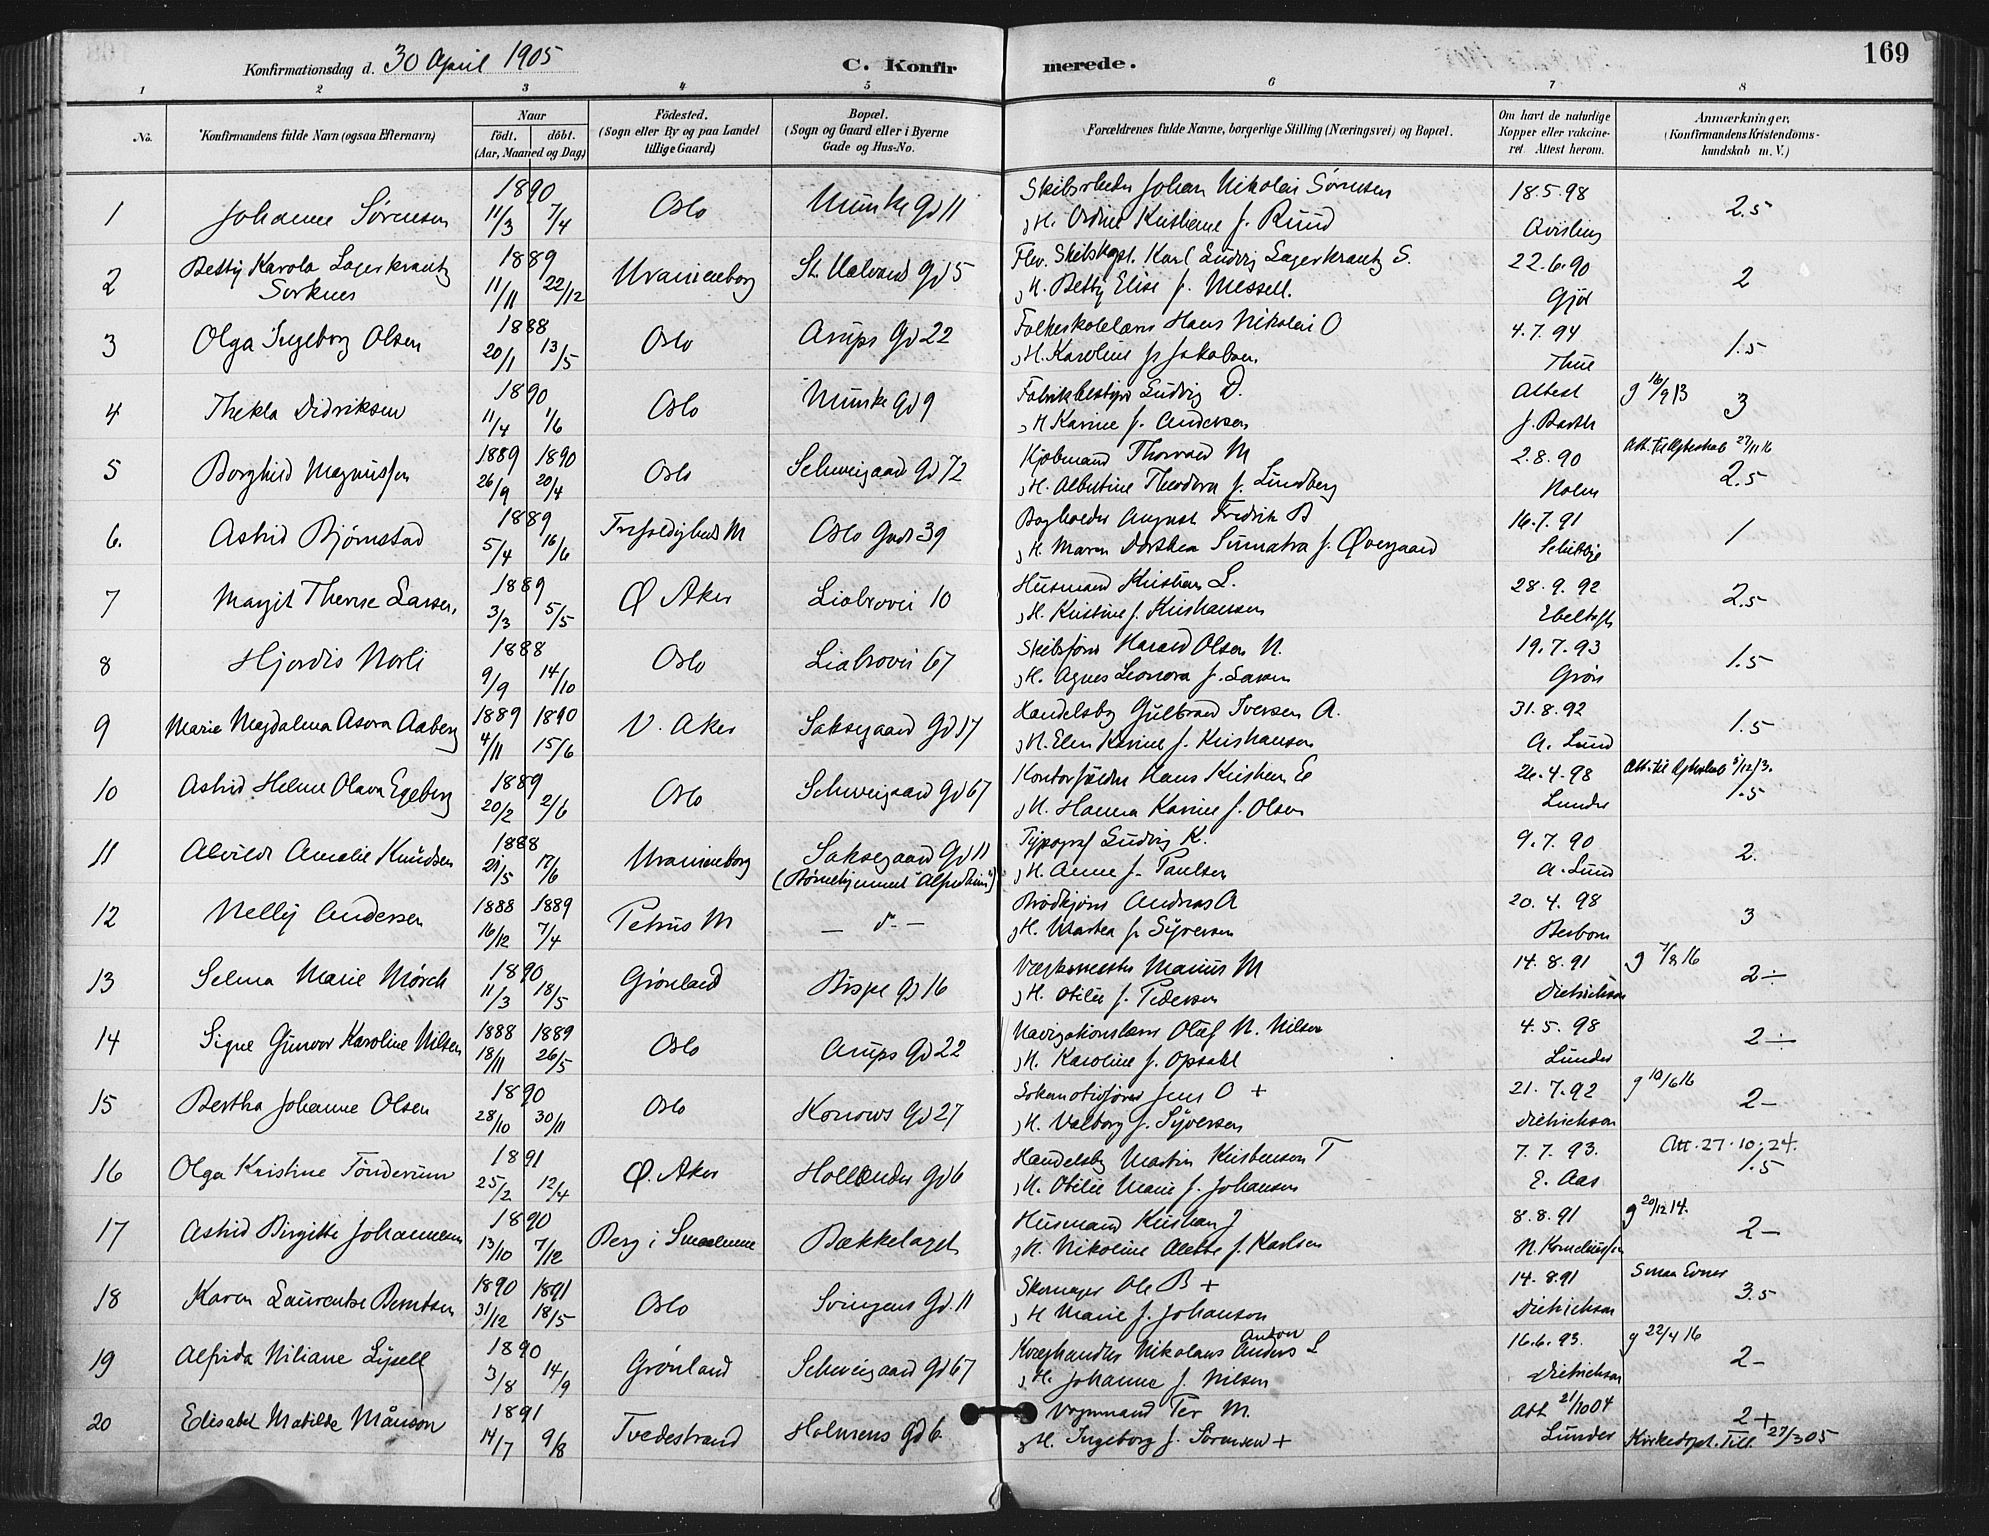 169
Konfirmationsdag d. 30 April 1905
C. Konfirmerede.
1 2 3 4 5 6 7 8
No.
Konfirmandens fulde Navn (ogsaa Efternavn)
Naar
födt. döbt.
(Aar, Maaned og Dag)
Födested.
(Sogn eller By og paa Landet
tillige Gaard)
Bopæl.
(Sogn og Gaard eller i Byerne
Gade og Hus-No.
Forældrenes fulde Navne, borgerlige Stilling (Næringsvei) og Bopæl.
Om havt de naturlige
Kopper eller vakcine-
ret. Attest herom.
Anmærkninger.
(Konfirmandens Kristendoms-
kundskab m. V.)
1 Johanne Sørensen 1890 11/3 7/4 Oslo Munke Gd 11 Skibsrheder Johan Nikolai Sørensen 18.5.98 2.5
H. Ordine Kristiane f. Ruud Qvisling
2 Betty Karola Lagerkrantz 1889 11/11 22/12 Uranienborg St. Halvard Gd 5 Skibskapt. Karl Ludvig Lagerkrantz S. 22.6.90 2
Sorknes H. Betty Elise f. Messell. Gjør
3 Olga Ingeborg Olsen 1888 20/1 13/5 Oslo Arups Gd 22 Folkeskolelærer Hans Nikolai O 4.7.94 1.5
H. Karoline f. Jakobsen Thue
4 Thekla Didriksen 1890 11/4 1/6 Oslo Munke Gd 9 Fabrikbestyrer Ludvig D. Attest g 16/9 13 3
H Karine f. Andersen J. Barth
5 Borghild Magnussen 1889 1890 26/9 20/4 Oslo Schweigaard Gd 72 Kjøbmand Thorvald M 2.8.90 Att. til Ægteskab 27/11 16 2.5
H. Albertine Theodora f. Lundberg Holm
6. Astrid Bjørnstad 1889 5/4 16/6 Trefoldighed M Oslo Gade 39 Bogholder August Fredrik B 16.7.91 1
H. Maren Dorthea Sumatra f. Øvergaard
7 Margit Therese Larsen 1889 3/3 5/5 Ø Aker Liabrovei 10 Husmand Kristian L. 28.9.92 2.5
H. Kristine f. Kristiansen Ebeltoft
8 Hjordis Norli 1888 9/9 14/10 Oslo Liabrovei 67 Skibsfører Harald Olsen N. 19.7.93 1.5
H. Agnes Leonora f. Larsen Grøn
9 Marie Magdalena Asora Aaberg 1889 1890 4/11 15/6 V. Aker Saksegaard Gd 17 Handelsbg Gulbrand Iversen A. 31.8.92 1.5
H. Elen Karine f. Kristiansen A. Lund
10 Astrid Helene Olava Egeberg 1889 20/2 2/6 Oslo Schweigaard Gd 67 Hans Kristian E 26.4.98 Att. til Ægteskab 3/12 13. 1.5
H. Hanna Karine f. Olsen Lunder
11 Alvilde Amalie Knudsen 1888 21/5 17/6 Uranienborg Saksegaard Gd 11 Typograf Ludvig K. 9.7.90 2.
(Børnehjemmet "Alfredheim") H. Anne f. Paulsen A. Lund
12 Nelly Andersen 1888 1889 16/12 7/4 Petrus M — d. — Brødkjører Andreas A 20.4.98 3
H. Martea f. Syversen Berbom
13 Selma Marie Mørch 1890 11/3 18/5 Grønland Bispe Gd 16 Marius M 14.8.91 g 7/8 16 2÷
H. Otilie f. Pedersen Dietrichson
14 Signe Gunvor Karoline Nilsen 1888 1889 18/11 26/5 Oslo Arups Gd 22 Navigationslærer Olaf N. Nilsen 4.5.98 2÷
H. Karoline f. Opsahl Lunder
15 Bertha Johanne Olsen 1890 28/10 30/11 Oslo Konows Gd 27 Lokomotivfører Jens O + 21.7.92 g 10/6 16 2–
H. Valborg f. Syversen Dietrichson
16 Olga Kristine Tønderum 1891 25/2 12/4 Ø. Aker Hollender Gd 6 Handelsbg Martin Kristensen T 7.7.93. Att. 27.10.24. 1.5
H. Otilie Marie f. Johansen E. Aas
17 Astrid Birgitte Johannesen 1890 13/10 7/12 Berg i Smaalenene Bækkelaget Husmand Kristian J 8.8.91 g 20/12 14. 2–
H. Nikoline Alette f. Karlsen N. Korneliussen
18 Karen Laurentze Berntsen 1890 1891 31/12 18/5 Oslo Svingens Gd. 11 Skomager Ole B + 14.8.91 Smaa Evner 3.5
H Marie f. Johanson Dietrichson
19 Alfrida Niliane Lysell 1890 3/8 14/9 Grønland Schweigaard Gd 67 Kvæghandler Nikolaus Anton Anders L 16.6.93. g 22/4 16 2–
H. Johanne f. Nilsen Dietrichson
20 Elisabet Matilde Månson 1891 14/7 9/8 Tvedestrand Holmens Gd 6 Vognmand Per M. Att 21/10 04 2+
H. Ingeborg f. Sørensen + Lunder Kirkedpt. Till. 27/3 05